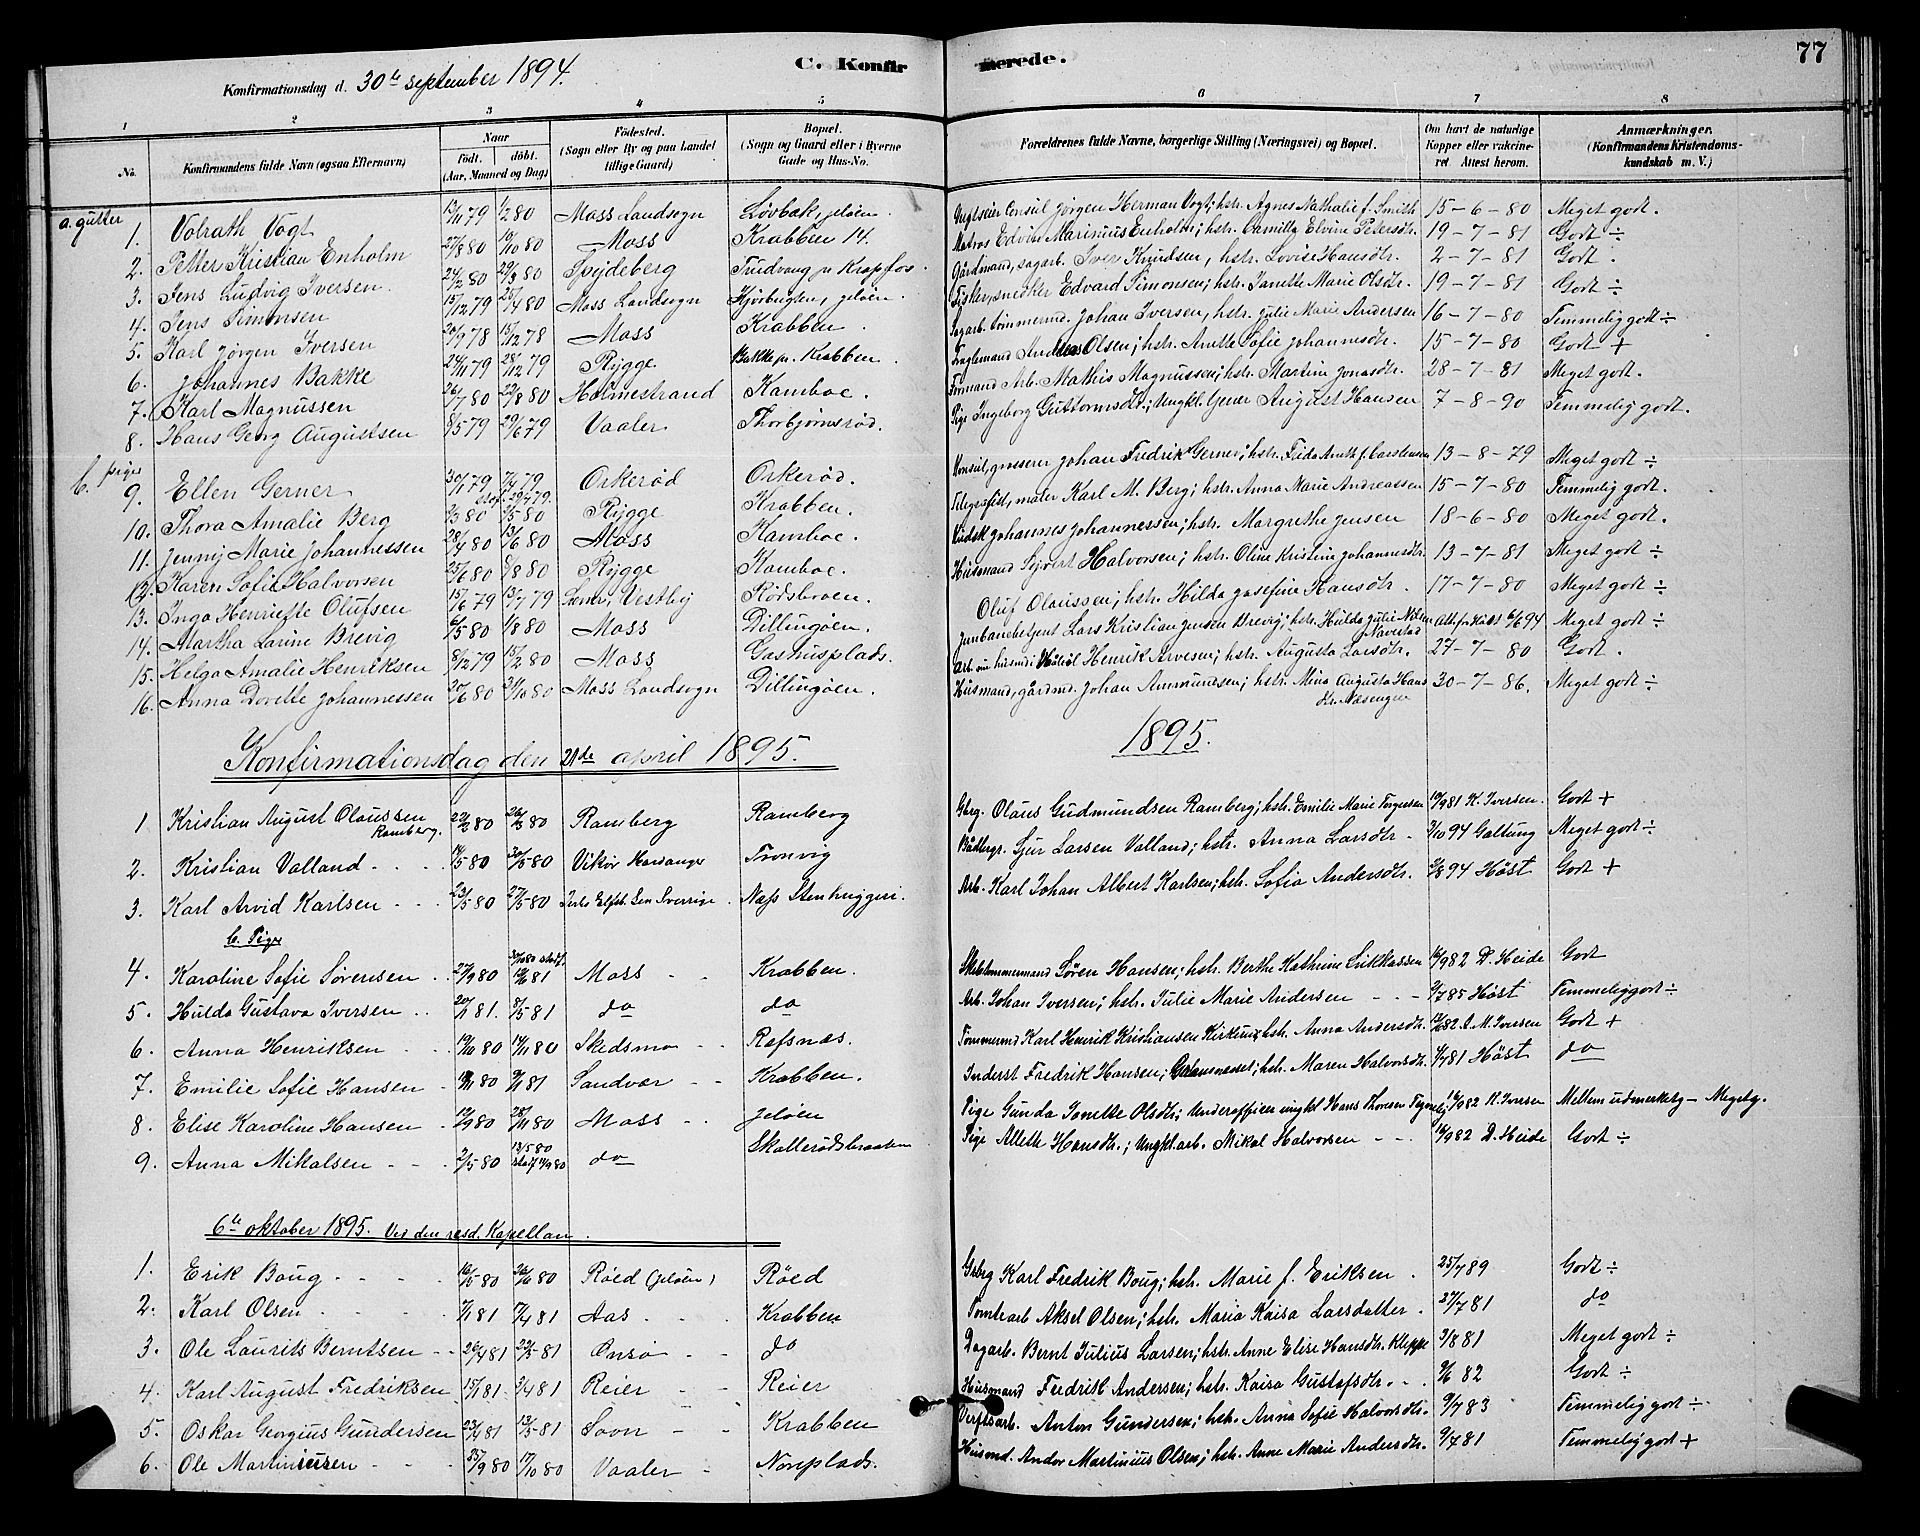 77
C. Konfirmerede.
Konfirmationsdag d. 30te september 1894.
1 2 3 4 5 6 7 8
No. Konfirmandens fulde Navn (ogsaa Efternavn) Naar født. døbt. (Aar, Maaned og Dag) Fødested. (Sogn eller By og paa Landet tillige Gaard) Bopæl. (Sogn og Gaard eller i Byerne Gade og Hus-No. Forældrenes fulde Navne, borgerlige Stilling (Næringsvei) og Bopæl. Om havt de naturlige Kopper eller vakcineret. Attest herom. Anmærkninger. (Konfirmandens Kristendomskundskab m. V.)
a. gutter
1. Volrath Vogt 13/11 79 1/2 80 Moss Landsogn Løvbak, jeløen. Consul Jørgen Herman Vogt; hstr. Agnes Nathalie f. Smith 15-6-80 Meget godt.
2. Petter Kristian Enholm 27/8 80 10/10 80 Moss Krabben 14. Matros Edvin Marinius Enholm; hstr. Camilla Elvine Petersdtr. 19-7-81 Godt ÷
3. Jens Ludvig Iversen. 24/2 80 29/3 80 Spydeberg Trudvang pr Krapfos. Gårdmand, sagarb. Iver Knudsen, hstr. Lovise Hansdtr. 2-7-81 Godt.
4. Jens Simonsen 15/12 79 25/4 80 Moss Landsogn Kjøbugten, jeløen. Fisker, snedker Edvard Simonsen; hstr. Janette Marie Olsdtr. 19-7-81 Godt ÷
5. Karl Jørgen Iversen 20/9 78 15/12 78 Moss Krabben. Sagarb. tømmermd. Johan Iversen, hstr. Julie Marie Andersen 16-7-80 Temmelig godt ÷
6. Johannes Bakke 24/11 79 28/12 79 Rygge Bakke pr. Krabben. Andreas Olsen; hstr. Anette Sofie Johannesdtr. 15-7-80 Godt +
7. Karl Magnussen 26/7 80 22/8 80 Holmestrand Kamboe. Formand Arb. Mathis Magnussen; hstr. Martine Jonasdtr. 28-7-81 Meget godt.
8. Hans Georg Augustsen 8/5 79 29/6 79 Vaaler Thorbjørnsrød. Pige Ingeborg Guttormsdtr.; Ungkl. Gener August Hansen 7-8-90 Temmelig godt.
b. piger
9. Ellen Gerner 30/1 79 7/4 79 Orkerød Orkerød. Konsul, grosserer Johan Fredrik Gerner; hstr. Frida Anette f. Carstensen 13-8-79 Meget godt ÷
10. Thora Amalie Berg 2/3 80 2/5 80 Rygge Krabben. maler Karl M. Berg; hstr. Anna Marie Andreassen 15-7-80 Temmelig godt.
11. Jenny Marie Johannessen 28/4 80 13/6 80 Moss Kamboe. Kudsk Johannes Johannessen; hstr. Margrethe Jensen 18-6-80 Meget godt.
12. Karen Sofie Halvorsen 25/6 80 8/8 80 Rygge Kamboe. Husmand Syvert Halvorsen; hstr. Oline Kristine Johannesdtr. 13-7-81 Meget godt ÷
13. Inga Henriette Olufsen 15/6 79 13/7 79 Vestby Rødsbroen. Oluf Olaussen; hstr. Hilda Josefine Hansdtr. 17-7-80 Meget godt ÷
14. Martha Larine Brevig 6/5 80 1/8 80 Moss Dillingøen. Jernbanebetjent Lars Kristian Jensen Brevig; hstr. Hulda Julie Nilsen Navestad 6/6 94 Meget godt ÷
15. Helga Amalie Henriksen 8/12 79 15/2 80 Moss Gashusplads. Henrik Arvesen; hstr. Augusta Larsdtr. 27-7-80 Godt.
16. Anna Dorette Johannessen 20/6 80 24/10 80 Moss Landsogn Dillingøen. Husmand, gårdmd. Johan Ammundsen; hstr. Mina Augusta Hansdtr. Næsengen 30-7-86. Meget godt ÷
Konfirmationsdag den 21de april 1895. 1895.
1 Kristian August Olaussen Ramberg. 22/2 80 26/3 80 Ramberg Ramberg Gbrg. Olaus Gudmundsen Ramberg; hstr. Emilie Marie Torgersen 10/9 81 K. Iversen. Godt +
2. Kristian Valland 14/5 80 30/5 80 Vikør Hardanger Tronvig Bådbygr. Sjur Larsen Valland; hstr. Anna Larsdtr. 2/10 94 Galtung Meget godt ÷
3. Karl Arvid Karlsen 23/5 80 27/5 80 Sverrige. Næss Stenhuggeri. Arb. Karl Johan Albert Karlsen; hstr. Sofia Andersdtr. 2/8 94 Höst Godt +
b. Piger
4. Karoline Sofie Sørensen 27/9 80 Moss Krabben. Skibstømmermand Søren Hansen; hstr. Berthe Kathrine Erikkassen 14/9 82 D. Heide Godt
5. Hulda Gustava Iversen 20/1 81. 8/5 81 do do Arb. Johan Iversen; hstr. Julie Marie Andersen 9/7 85 Höst Temmelig godt ÷
6. Anna Henriksen 19/10 80 14/11 80 Skedsmo Refsnæs. Tømmermd Karl Henrik Kristiansen Kirkeng; hstr. Anna Andersdtr. 12/6 82 A. M. Iversen Godt +
7. Emilie Sofie Hansen 19/11 80 9/1 81 Sandvær Krabben. Inderst Fredrik Hansen, Grimsnæset; hstr. Maren Halvorsdtr. 4/7 81 Höst do
8. Elise Karoline Hansen 19/9 80 28/11 80 Moss Jeløen Pige Gunda Jonette Olsdtr; Underofficer ungkl Hans Thoresen 14/9 82 K. Iversen Mellem udmerketg - Megetg.
9. Anna Mikalsen 2/5 80 13/5 80 do Skallerødsbraaten Pige Allette Hansdtr.; Ungkl. arb. Mikal Halvorsen 16/9 82 D. Heide Godt ÷
6te oktober 1895. Ved den resd. Kapellan.
1. Erik Boug 16/5 80 26/6 80 Røed (jeløen) Røed Gbrg Karl Fredrik Boug; hstr. Marie f. Eriksen. 25/7 89 Godt ÷
2. Karl Olsen 7/1 81 17/4 81 Aas Krabben Tomtearb Aksel Olsen; hstr. Maria Kaisa Larsdatter. 27/7 81 do
3. Ole Laurits Berntsen 26/4 81 22/5 81 Onsø do Dagarb. Bernt Julius Larsen; hstr. Anne Elise Hansdtr. Kleppe 3/8 81 Meget godt ÷
4. Karl August Fredriksen 15/1 81 3/4 81 Reier Reier Husmand Fredrik Andersen; hstr. Kaisa Gustafsdtr. 9/6 82 Godt ÷
5. Oskar Georgius Gundersen 23/4 81 13/5 81 Soon Krabben Verftsarb. Anton Gundersen; hstr. Anna Sofie Halvorsdtr. 9/7 83 Temmelig godt ÷
6. Ole Martiniussen 25/9 80 17/10 80 Vaaler Noreplads. Husmd. Andor Martinius Olsen; hstr. Anne Marie Andersdtr. 9/7 81 Temmelig godt +